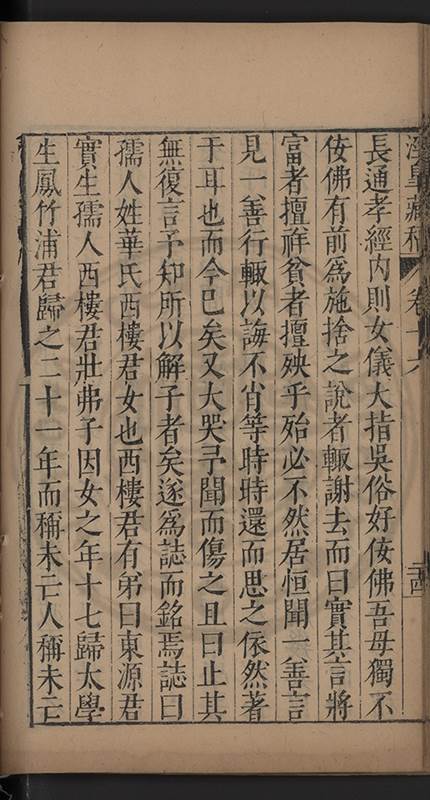 長通孝經內則女儀大指吳俗好佞佛吾母獨不
佞佛有前為施捨之說者輙謝去而曰實其言將
富者擅祥貧者擅殃乎殆必不然居恒聞一善言
見一善行輙以誨不肖等時時還而思之依然著
于耳也而今已矣又大哭予聞而傷之且曰止其
無復言予知所以解子者矣遂為誌而銘焉誌曰
孺人姓華氏西樓君女也西樓君有弟曰東源君
實生孺人西樓君壯弗子因女之年十七歸太學
生鳳竹浦君歸之二十一年而稱未亡人稱未亡